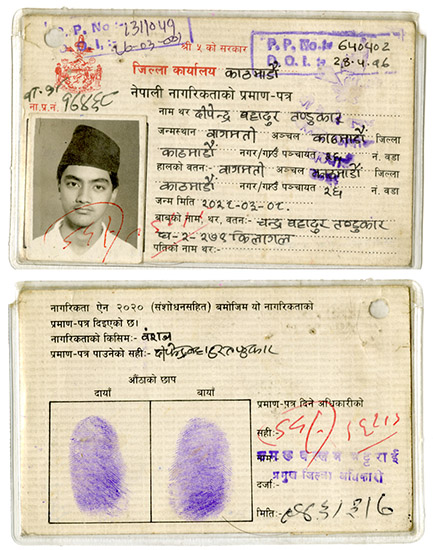 P. P. No :- 2311049
D. O. I. :- 26-03-001
श्री ५ को सरकार
P. P. No :- 640402
D. O. I. :- 28.4.96
जिल्ला कार्यालय काठमाडौं
नेपाली नागरिकताको प्रमाण-पत्र
ना.प्र.नं.
नाम थर दीपेन्द्र बहादुर तण्डुकार
जन्मस्थान वागमती अञ्चल काठमाडौं जिल्ला
काठमाडौं नगर/गाउँ पञ्चायत २६ नं. वडा
हालको वतन:- वागमती अञ्चल काठमाडौं
काठमाडौं नगर/गाउँ पञ्चायत २६ नं. वडा
जन्म मिति २०२६-०३-०८.
बाबुको नाम, थर, वतन:- चन्द्र बहादुर तण्डुकार
प्य-२-२७९ किलागल
पतिको नाम थर:-
नागरिकता ऐन २०२० (संशोधनसहित) बमोजिम यो नागरिकताको
प्रमाण-पत्र दिइएको छ।
नागरिकताको किसिम:- वंशज
प्रमाण-पत्र पाउनेको सही:-
औंठाको छाप
दायाँ बायाँ
प्रमाण-पत्र दिने अधिकारीको
सही:-
नाम:-
प्रमुख जिल्ला अधिकारी
दर्जा:-
मिति:-